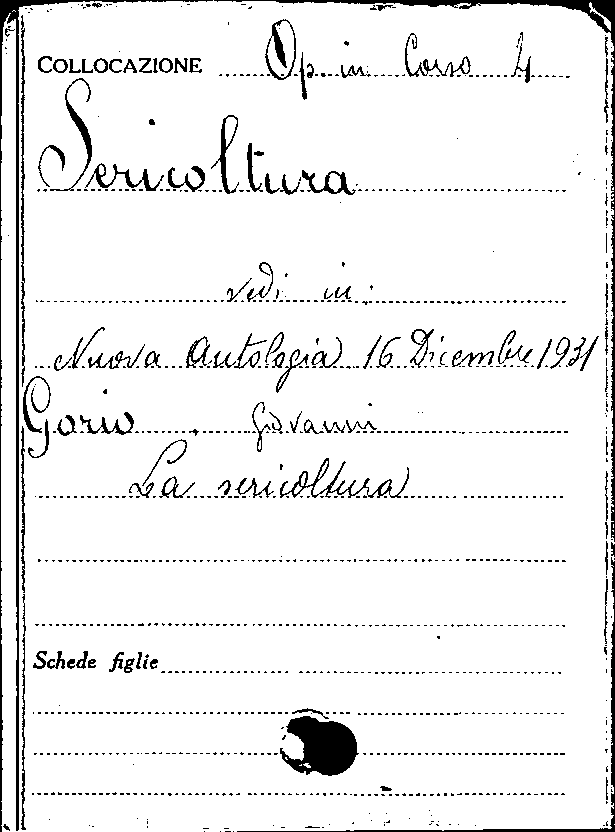 COLLOCAZIONE Op. in Corso 4
Sericoltura
vedi in:
Nuova Antologia 16 Dicembre 1931
Gorio Giovanni
La sericoltura
Schede figlie